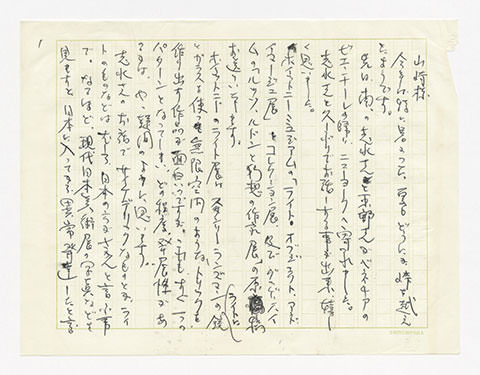 1
山崎様
今年は特に暑かった夏もどうにか峠を越え
たようです。
先日、南、志水さんと東野さんがベネチアの
ビエンナーレの帰りニューヨークへ寄られました。
志水さんとスードリでお話しする事が出来、嬉し
く思いました。
ホイットニー・ミュージアムの「ライト：オブジェクト アンド
イメージ展」とコレクション展 及び グッゲンハイ
ムの「ルッソ、ルドンと幻想の作家」展の原稿
お送りいたします。
ホイットニーのライト展はスタンリー・ランズマンの鏡
とガラスを使って無限空間のような、トリックを
ライトに
作り出す作品が面白いのですが、これも すぐ一つの
パターンとなってしまい、どの程度 発展性があ
るかは、やゝ疑問のように思います。
志水さんのお話で サイケデリックなものとか、ライ
トのものなどは むしろ 日本の方がさかんと言う事
で、なるほど、現代日本美術展の写真などを
見ますと 日本に入ってから異常発達したと言